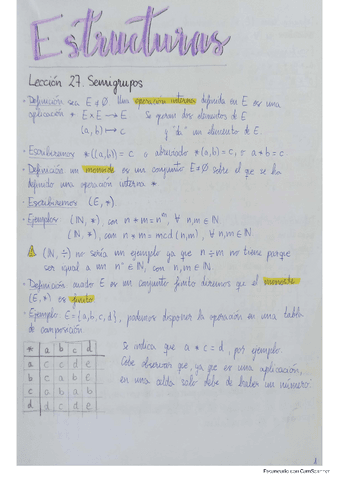 Estructuras
Lección 27. Semigrupos
· Definición sea E ≠ ∅. Una operación interna definida en E es una
aplicación * E×E → E Se operan dos elementos de E
(a, b) → c y "da" un elemento de E.
· Escribiremos *((a,b)) = c o abreviado *(a,b) = c, = a * b = c.
· Definición un monoide es un conjunto E≠∅ sobre el que se ha
definido una operación interna *
· Escribiremos (E, *).
· Ejemplos (ℕ, *), con n * m = nᵐ, ∀ n,m ∈ ℕ
(ℕ, *), con n * m = mcd (n,m), ∀ n,m ∈ ℕ.
(ℕ, ÷) no sería un ejemplo ya que n ÷ m no tiene porque
ser igual a un nº ∈ ℕ, con n,m ∈ ℕ
· Definición cuando E es un conjunto finito diremos que el monoide
(E, *) es finito
· Ejemplo E = {a, b, c, d}, podemos disponer la operación en una tabla
de composición
* a b c d
a c c d
b
c
d d c d
Se indica que a * c = d, por ejemplo
Cabe observar que, ya que es una aplicación,
en una celda solo debe de haber un número.
1
Escaneado con CamScanner